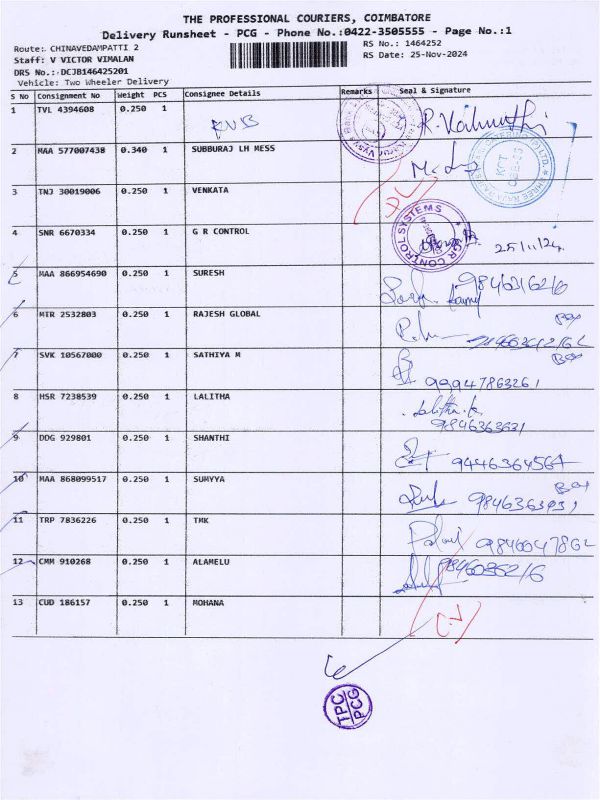 THE PROFESSIONAL COURIERS, COIMBATORE
Delivery Runsheet - PCG - Phone No.:0422-3505555 - Page No.:1
Route: CHINAVEDAMPATTI 2
RS No.: 1464252
Staff: V VICTOR VIMALAN
RS Date: 25-Nov-2024
DRS No.:DCJB146425201
Vehicle: Two Wheeler Delivery
S No Consignment No Weight PCS Consignee Details Remarks Seal & Signature
1 TVL 4394608 0.250 1 KVB
2 MAA 577007438 0.340 1 SUBBURAJ LH MESS
3 TNJ 30019006 0.250 1 VENKATA
4 SNR 6670334 0.250 1 G R CONTROL 25/11/24
GR CONTROL SYSTEMS
5 MAA 866954690 0.250 1 SURESH
6 MTR 2532803 0.250 1 RAJESH GLOBAL
7 SVK 10567000 0.250 1 SATHIYA M 99947863261
8 HSR 7238539 0.250 1 LALITHA Lalitha.k
9846363631
9 DDG 929801 0.250 1 SHANTHI 9446364564
10 MAA 868099517 0.250 1 SUMYYA
11 TRP 7836226 0.250 1 TMK
12 CMM 910268 0.250 1 ALAMELU
13 CUD 186157 0.250 1 MOHANA
TPC
PCG